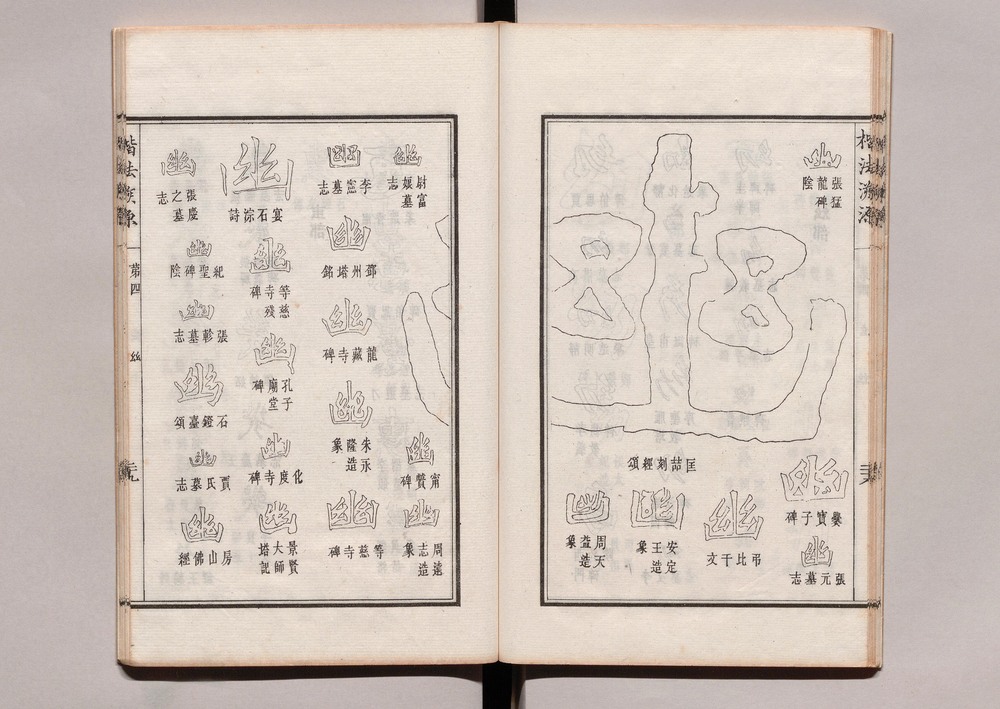 楷法溯源
幽
張猛龍碑陰
幽
爨寶子碑
幽
張元墓志
幽
匡喆刻經頌
幽
弔比干文
幽
安定王造象
幽
周天益造象
幽
尉富孃墓志
幽
甯贙碑
幽
周遠志造象
幽
李憲墓志
幽
鄧州塔銘
幽
龍藏寺碑
幽
朱永隆造象
幽
等慈寺碑
幽
宴石淙詩
幽
等慈寺殘碑
幽
孔子廟堂碑
幽
化度寺碑
幽
景賢大師塔記
幽
張慶之墓志
幽
紀聖碑陰
幽
張軫墓志
幽
石鐙臺頌
幽
賈氏墓志
幽
房山佛經
楷法溯源
第四